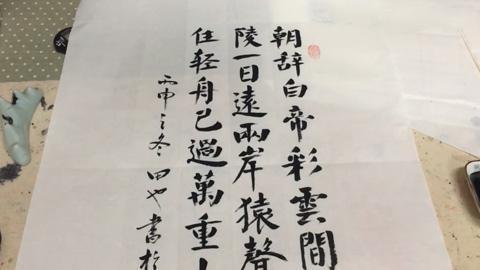 朝辞白帝彩雲間
陵一日遠兩岸猿聲
住轻舟已過萬重
丙申之冬田也書於